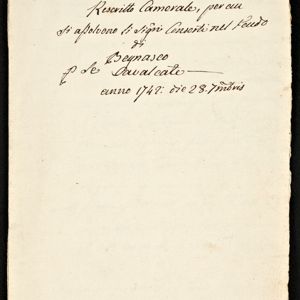 Rescritto Camerale, per cui
si assolvono li Sig.ri Consorti nel Feudo
di
Bagnasco
p le Cavalcate
anno 1742: die 28. 7mbris